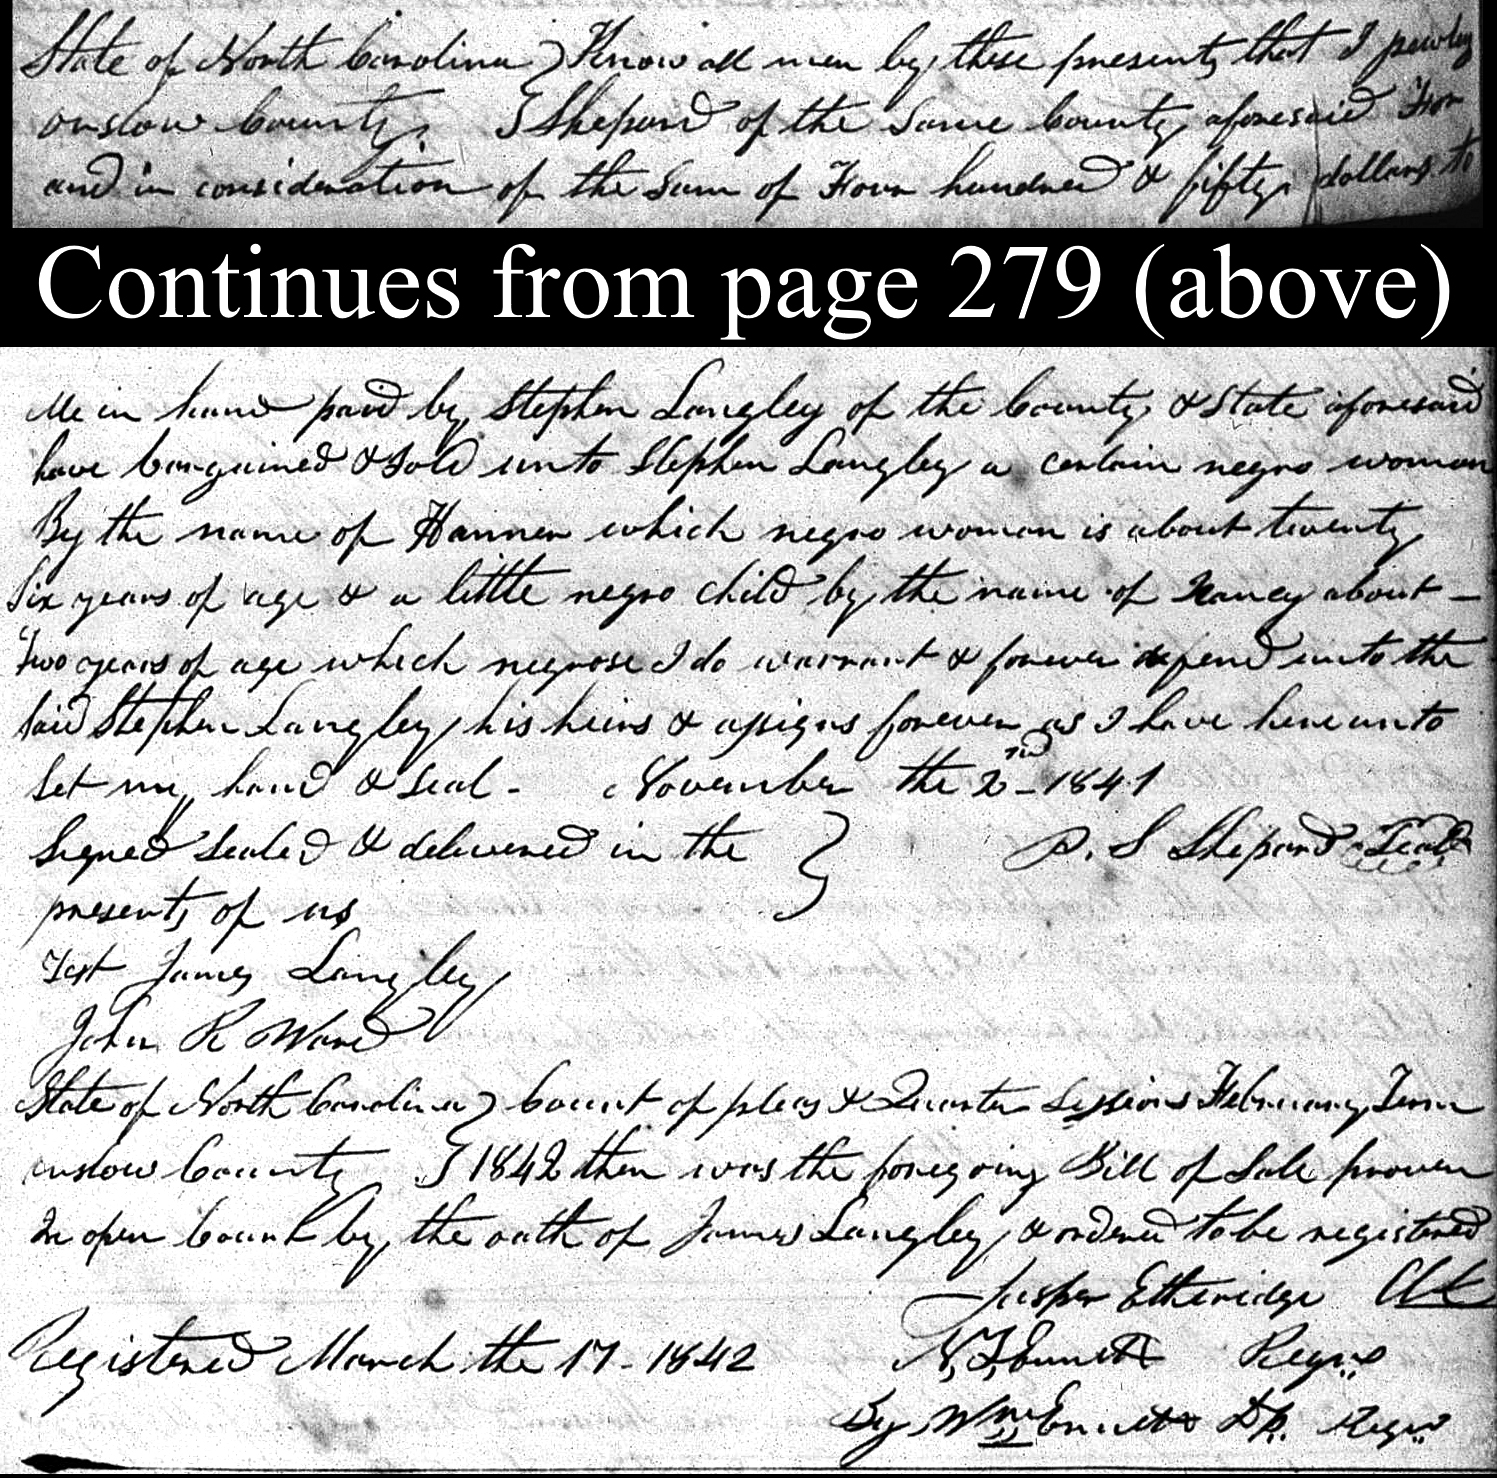 State of North Carolina } Know all men by these presents that I
onslow County } Shepard of the Same County aforesaid For
and in consideration of the Sum of Four hundred & fifty dollars to
Continues from page 279 (above)
Me in hand paid by Stephen Langley of the County & State aforesaid
have bargained & Sold unto Stephen Langley a certain negro woman
By the name of Hanner which negro woman is about twenty
Six years of age & a little negro child by the name of Nancy about —
Two years of age which negrose I do warrant & forever defend unto the
Said Stephen Langley his heirs & assigns forever as I have hereunto
Set my hand & Seal - November the 2nd 1841
Signed Sealed & delivered in the } P. S Shepard Seal
presents of us
Test James Langley
John R Ward
State of North Carolina } Court of pleas & Quarter Sessions February Term
onslow County } 1842 then was the foregoing Bill of Sale proven
In open Court by the oath of James Langley & ordered to be registered
Jasper Etheridge Clk
Registered March the 17 - 1842 N. T. Ennett Regr
By Wm Ennett Dp. Regr